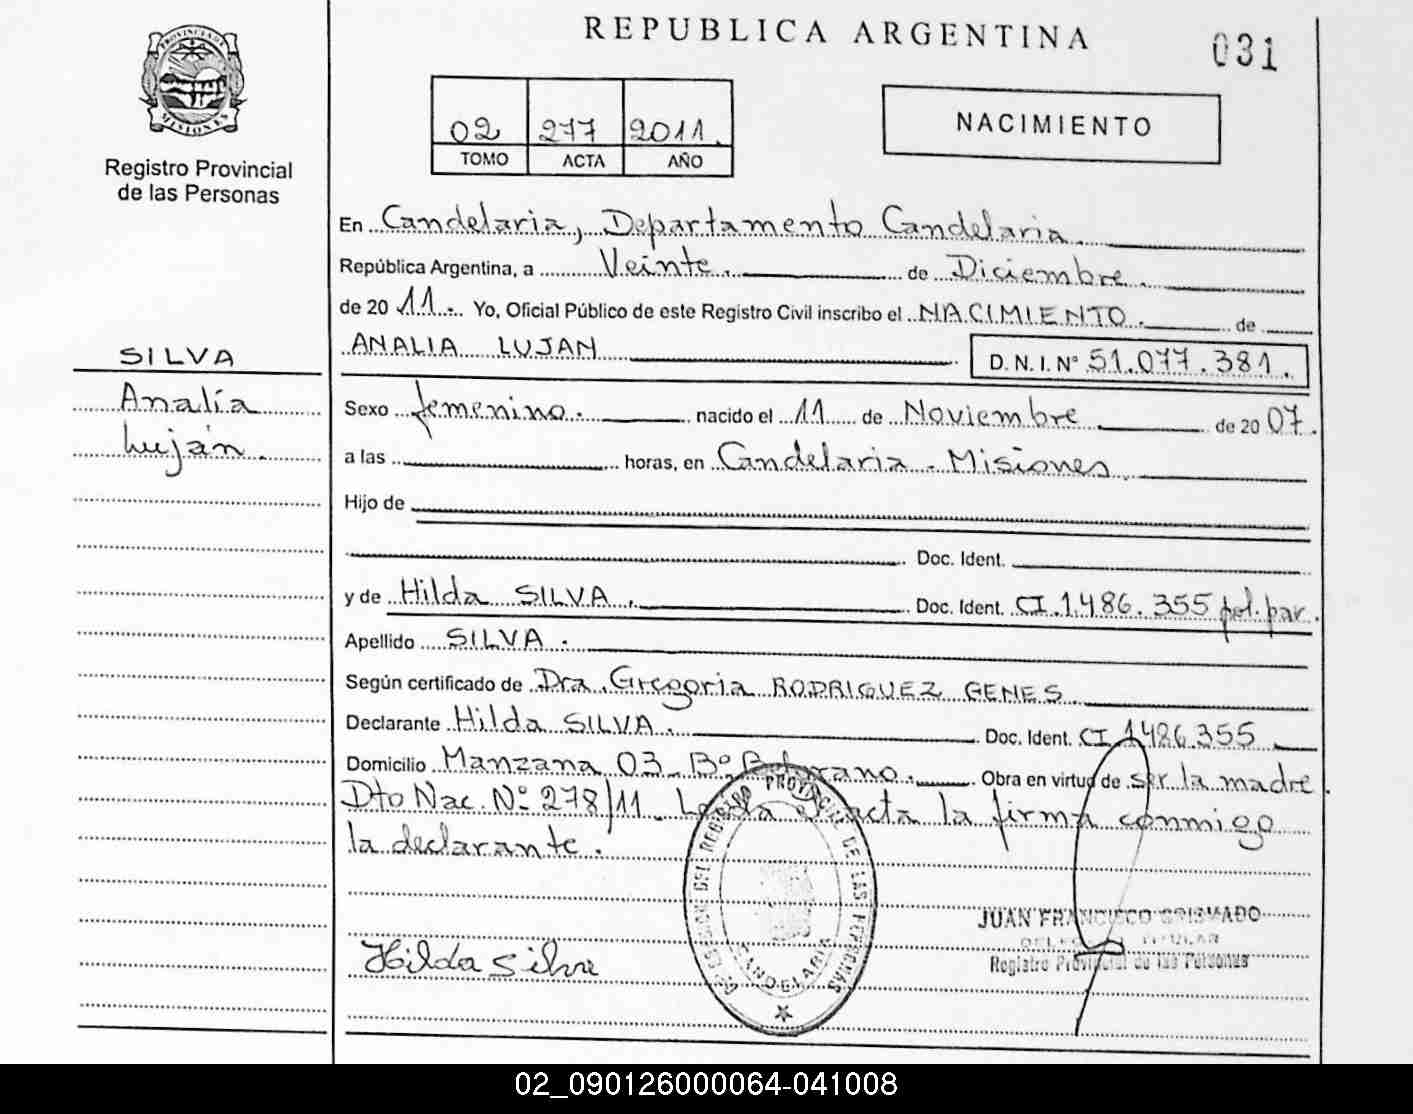 REPUBLICA ARGENTINA
031
PROVINCIA DE MISIONES
Registro Provincial
de las Personas
02 277 2011.
TOMO ACTA AÑO
NACIMIENTO
SILVA
Analía
Luján.
En Candelaria, Departamento Candelaria.
República Argentina, a Veinte. de Diciembre.
de 20 11. Yo, Oficial Público de este Registro Civil inscribo el NACIMIENTO. de
ANALIA LUJAN D.N.I. Nº 51.077.381.
Sexo femenino. nacido el 11 de Noviembre de 20 07.
a las horas, en Candelaria - Misiones
Hijo de
Doc. Ident.
y de Hilda SILVA. Doc. Ident. CI.1.486.355 pol. par.
Apellido SILVA.
Según certificado de Dra. Gregoria RODRIGUEZ GENES
Declarante Hilda SILVA. Doc. Ident. CI 1486.355
Domicilio Manzana 03 - Bº Belgrano. Obra en virtud de ser la madre.
Dto Nac. Nº 278/11. Leída el acta la firma conmigo
la declarante.
Hilda Silva
DEL REGISTRO PROVINCIAL DE LAS PERSONAS
CANDELARIA
JUAN FRANCISCO
TITULAR
Registro Provincial de las Personas
02_090126000064-041008